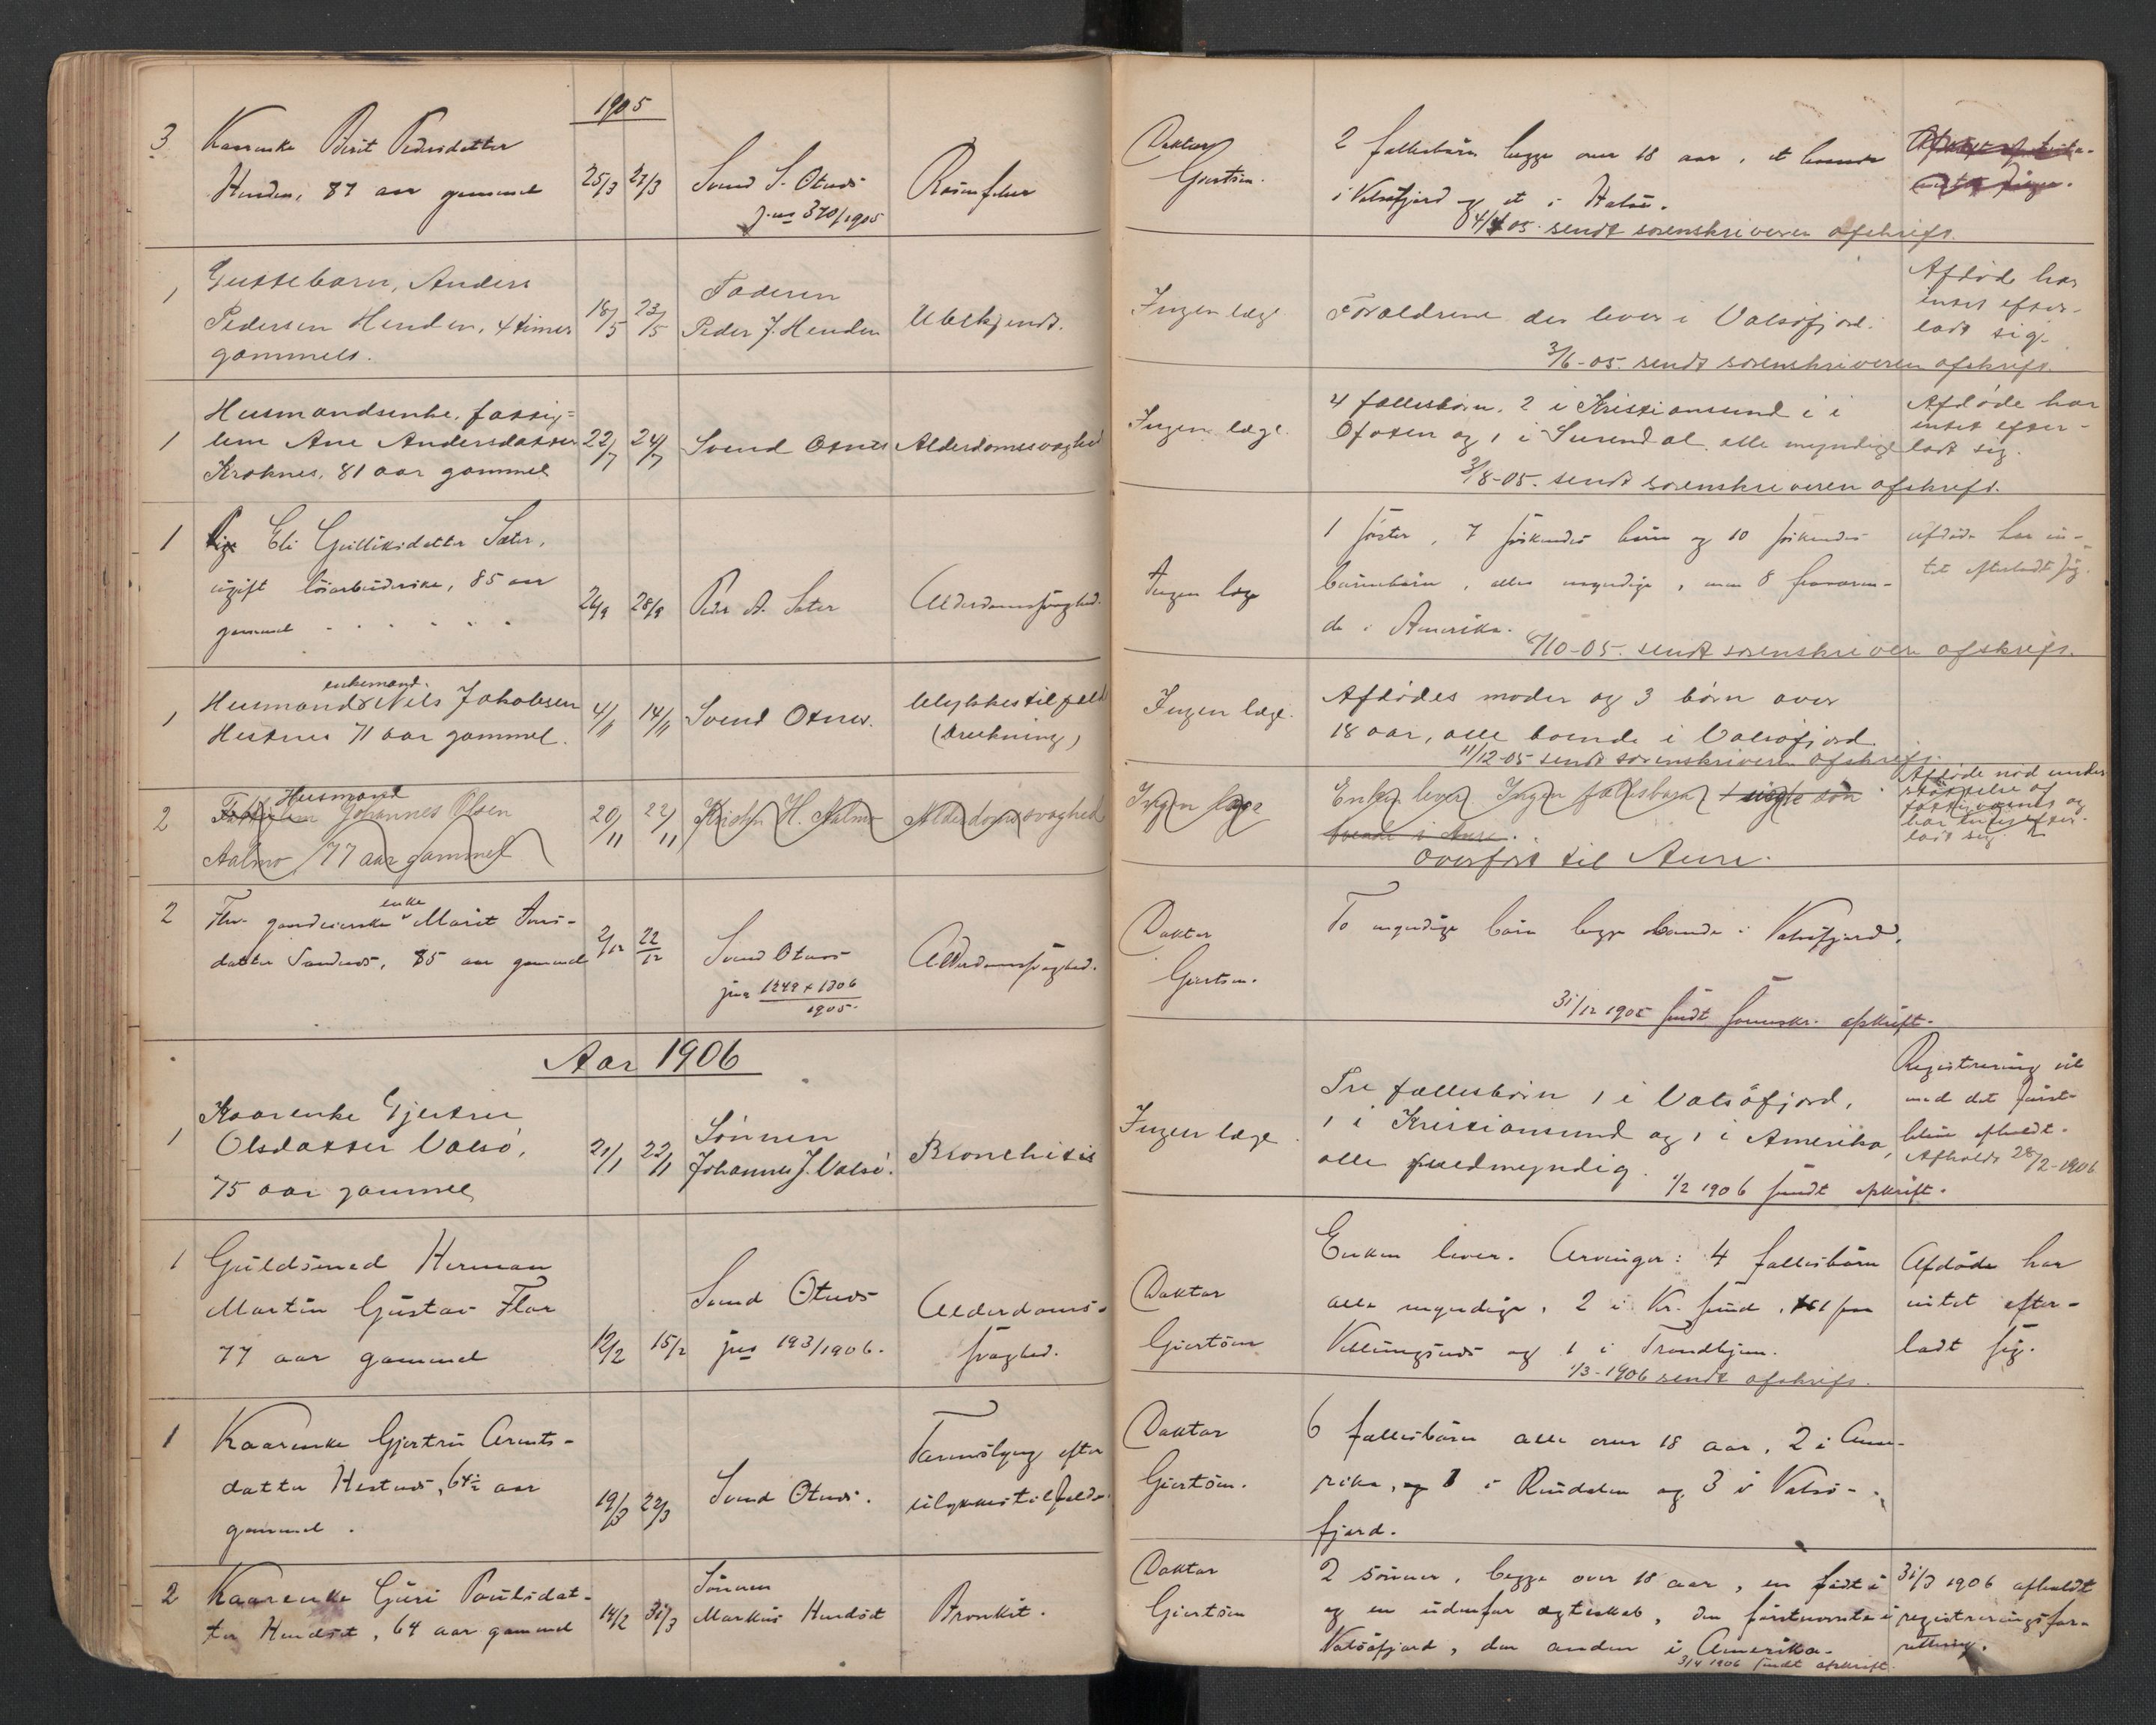 1905
3 Kaarenke Berit Pedersdatter
Henden, 87 aar gammel 25/3 27/3 Svend S. Otnes Rosenfeber
jno 370/1905
Doktor
Giertsen.
2 fællesbørn begge over 18 aar, et boende
i Valsøfjord og et i Halse.
4/4 05. sendt sorenskriveren afskrift.
1 Guttebarn, Anders
Pedersen Henden, 4 timer
gammels.
18/5 23/5
Faderen
Peder J. Henden
Ubekjendt.
Ingen læge
Forældrene der lever i Valsøfjord.
3/6-05. sendt sorenskriveren afskrift.
Afdøde har
intet efter-
ladt sig.
1 Husmandsenke, fattig=
lem Ane Andersdatter
Kroknes, 81 aar gammel
22/7 24/7 Svend Otnes Alderdomssvaghed
Ingen læge.
4 fællesbørn, 2 i Kristiansund 1 i
Ofoten og 1 i Surendal alle myndige
3/8-05. sendt sorenskriveren afskrift.
Afdøde har
intet efter-
ladt sig.
1 Pige Eli Gulliksdatter Sæter,
ugift løsarbeiderske, 85 aar
gammel
26/9 28/9 Peder A. Sæter Alderdomssvaghed.
Ingen læge
1 søster, 7 søskendes børn og 10 søskendes
børnebørn, alle myndige, men 8 fraværen-
de i Amerika.
/10-05. sendt sorenskriveren afskrift.
afdøde har in-
tet efterladt sig.
enkemand.
1 Husmand Nels Jakobsen
Hestnes 71 aar gammel.
4/11 14/11 Svend Otnes.
Ulykkestilfælde
(drukning)
Ingen læge.
Afdødes moder og 3 børn over
18 aar, alle boende i Valsøfjord.
11/12-05 sendt sorenskriveren afskrift.
Husmand
2 Johannes Olsen
Aalmo 77 aar gammel
20/11 22/11 Kristen H. Aalmo Alderdomssvaghed
Ingen læge
Enken lever. Ingen fællesbarn 1 uægte søn
boende i Aure.
overført til Aure.
Afdøde nød under-
støttelse af
fattigvæsnet og
har intet efter-
ladt sig.
enke
2 Fhv. gaardeierske Marit Jons-
datter Sandnes, 85 aar gammel
2/12 22/12
Svend Otnes
jno 1249 + 1306
1905.
Alderdomssvaghed.
Doktor
Giertsen.
To myndige børn begge boende i Valsøfjord.
31/12 1905 sendt sorenskr. afskrift.
Aar 1906
1 Kaarenke Gjertru
Olsdatter Valsø,
75 aar gammel
21/1 22/1
Sønnen
Johannes J. Valsø.
Bronchitis
Ingen læge.
Tre fællesbørn 1 i Valsøfjord,
1 i Kristiansund og 1 i Amerika,
alle fuldmyndig.
1/2 1906 sendt afskrift.
Registrering vil
med det første
blive afholdt.
Afholdt 28/2-1906
1 Guldsmed Herman
Martin Gustav Flor
77 aar gammel
12/2 15/2
Svend Otnes
jno 193/1906.
Alderdoms-
svaghed.
Doktor
Giertsen
Enken lever. Arvinger: 4 fællesbørn
alle myndige, 2 i Kr. sund, 1 paa
Veblungsnes og 1 i Trondhjem.
1/3-1906 sendt afskrift.
Afdøde har
intet efter-
ladt sig.
1 Kaarenke Gjertru Arents-
datter Hestnes, 64½ aar
gammel.
19/3 22/3 Svend Otnes.
Tarmslyng efter
ulykkestilfælde.
Doktor
Giertsen.
6 fællesbørn alle over 18 aar, 2 i Ame-
rika, og 1 i Rindalen og 3 i Valsø-
fjord.
2 Kaarenke Guri Poulsdat-
ter Hendset, 64 aar gammel
14/2 31/3
Sønnen
Markus Hendset
Bronkit.
Doktor
Giertsen
2 sønner, begge over 18 aar, en født i
og en udenfor ægteskab, den førstnævnte i
Valsøfjord, den anden i Amerika.
3/4 1906 sendt afskrift.
31/3 1906 afholdt
registreringsfor-
retning.